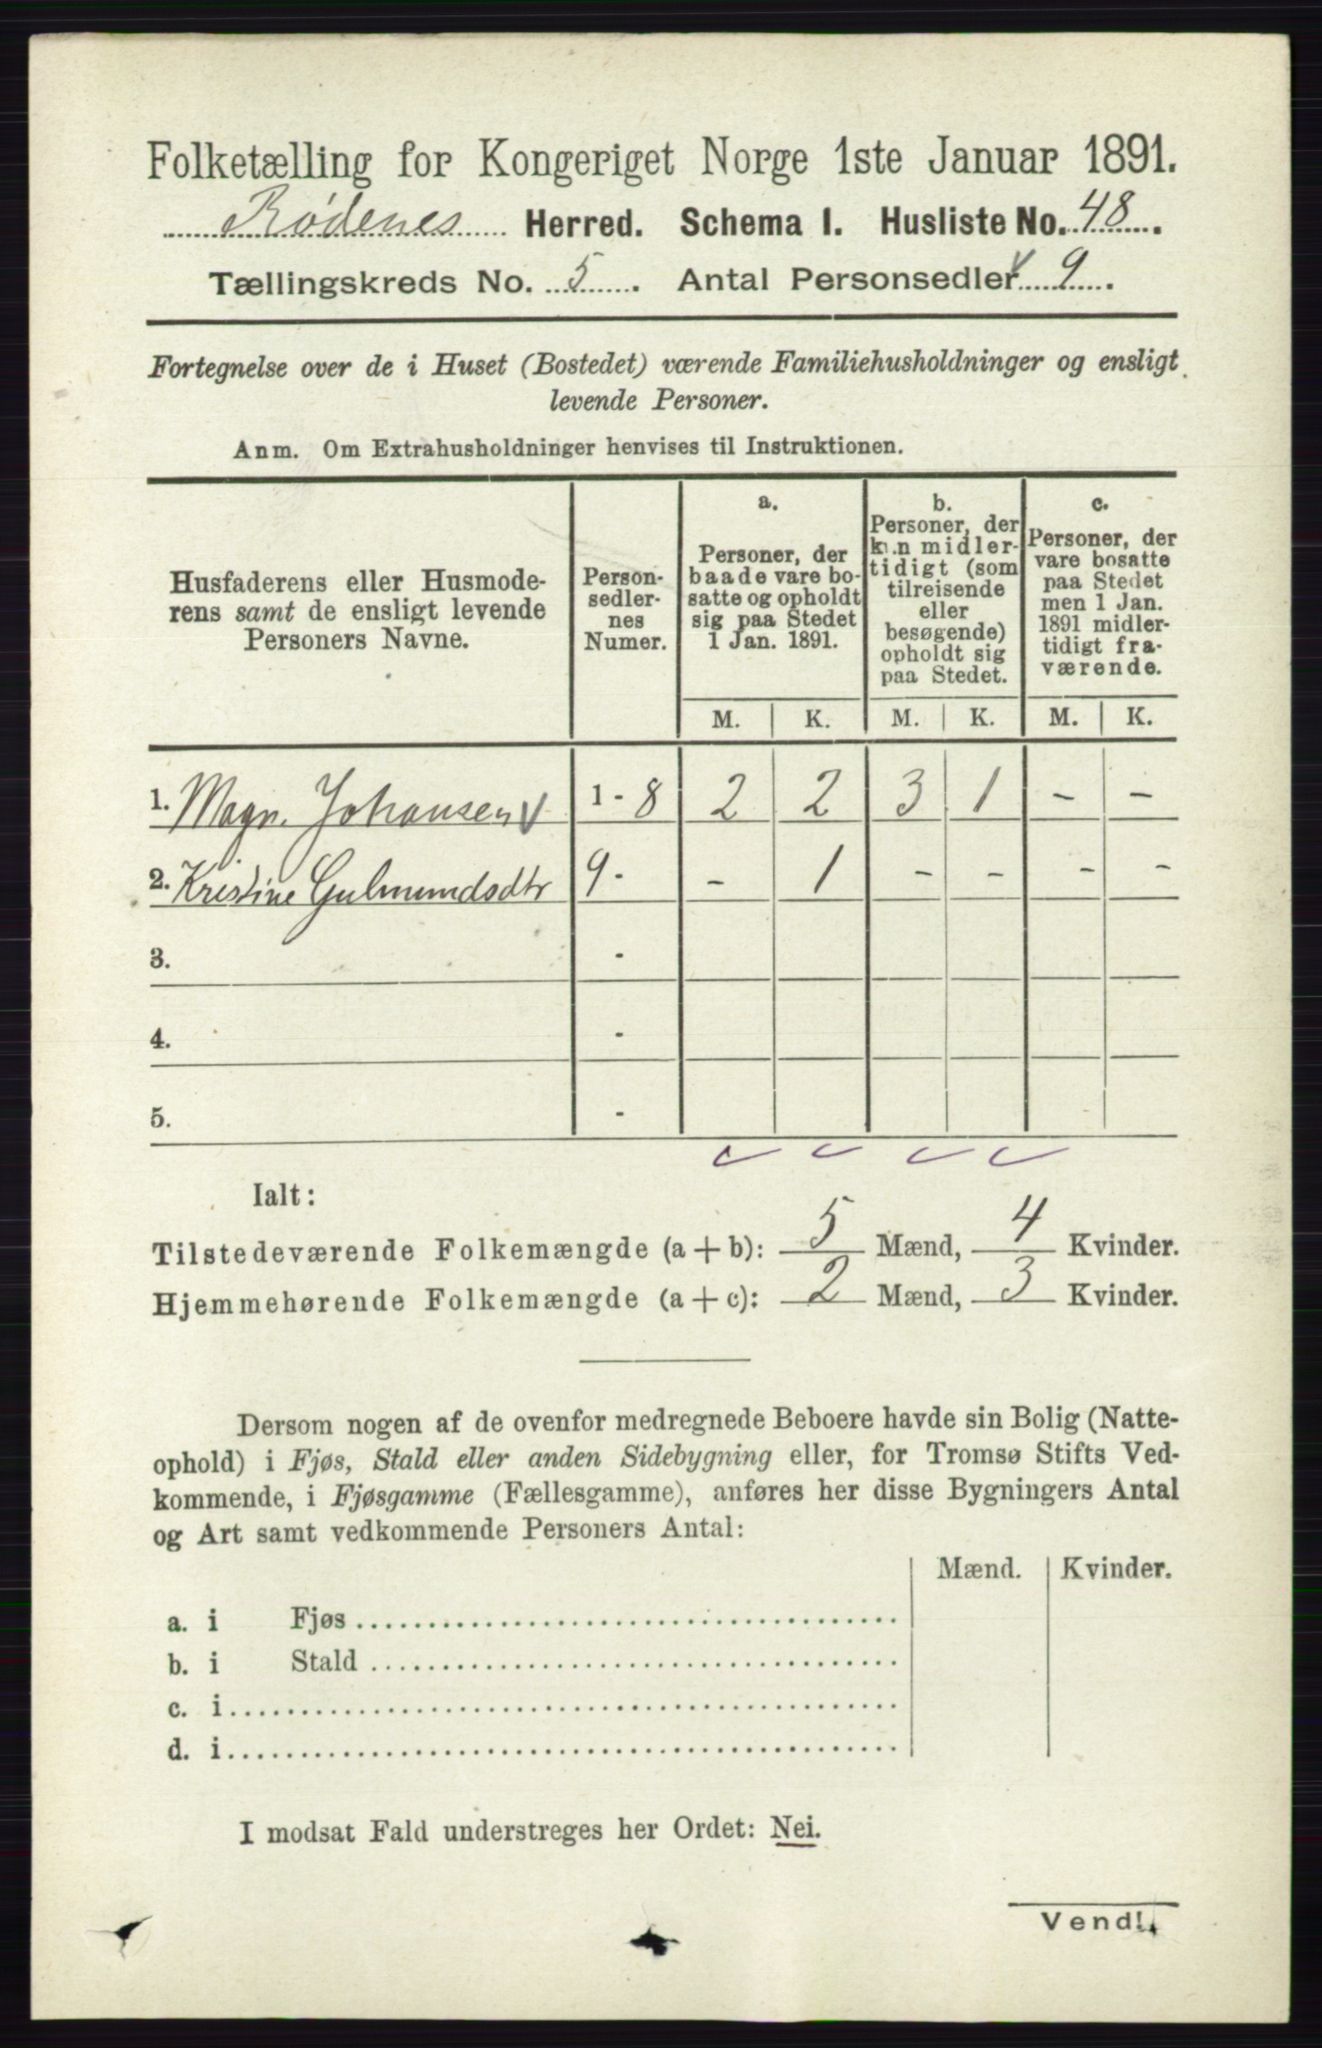 Folketælling for Kongeriget Norge 1ste Januar 1891.
Rødenes Herred. Schema I. Husliste No. 48.
Tællingskreds No. 5. Antal Personsedler 9.
Fortegnelse over de i Huset (Bostedet) værende Familiehusholdninger og ensligt
levende Personer.
Anm. Om Extrahusholdninger henvises til Instruktionen.
Husfaderens eller Husmode-
rens samt de ensligt levende
Personers Navne.
Person-
sedler-
nes
Numer.
a.
Personer, der
baade vare bo-
satte og opholdt
sig paa Stedet
1 Jan. 1891.
b.
Personer, der
kun midler-
tidigt (som
tilreisende
eller
besøgende)
opholdt sig
paa Stedet.
c.
Personer, der
vare bosatte
paa Stedet
men 1 Jan.
1891 midler-
tidigt fra-
værende.
M. K. M. K. M. K.
1. Magn. Johansen 1 - 8 2 2 3 1 - -
2. Kristine Gulmundsdtr 9 - - 1 - - - -
3. -
4. -
5. -
Ialt:
Tilstedeværende Folkemængde (a + b): 5 Mænd, 4 Kvinder.
Hjemmehørende Folkemængde (a + c): 2 Mænd, 3 Kvinder.
Dersom nogen af de ovenfor medregnede Beboere havde sin Bolig (Natte-
ophold) i Fjøs, Stald eller anden Sidebygning eller, for Tromsø Stifts Ved-
kommende, i Fjøsgamme (Fællesgamme), anføres her disse Bygningers Antal
og Art samt vedkommende Personers Antal:
Mænd. Kvinder.
a. i Fjøs
b. i Stald
c. i
d. i
I modsat Fald understreges her Ordet: Nei.
Vend!